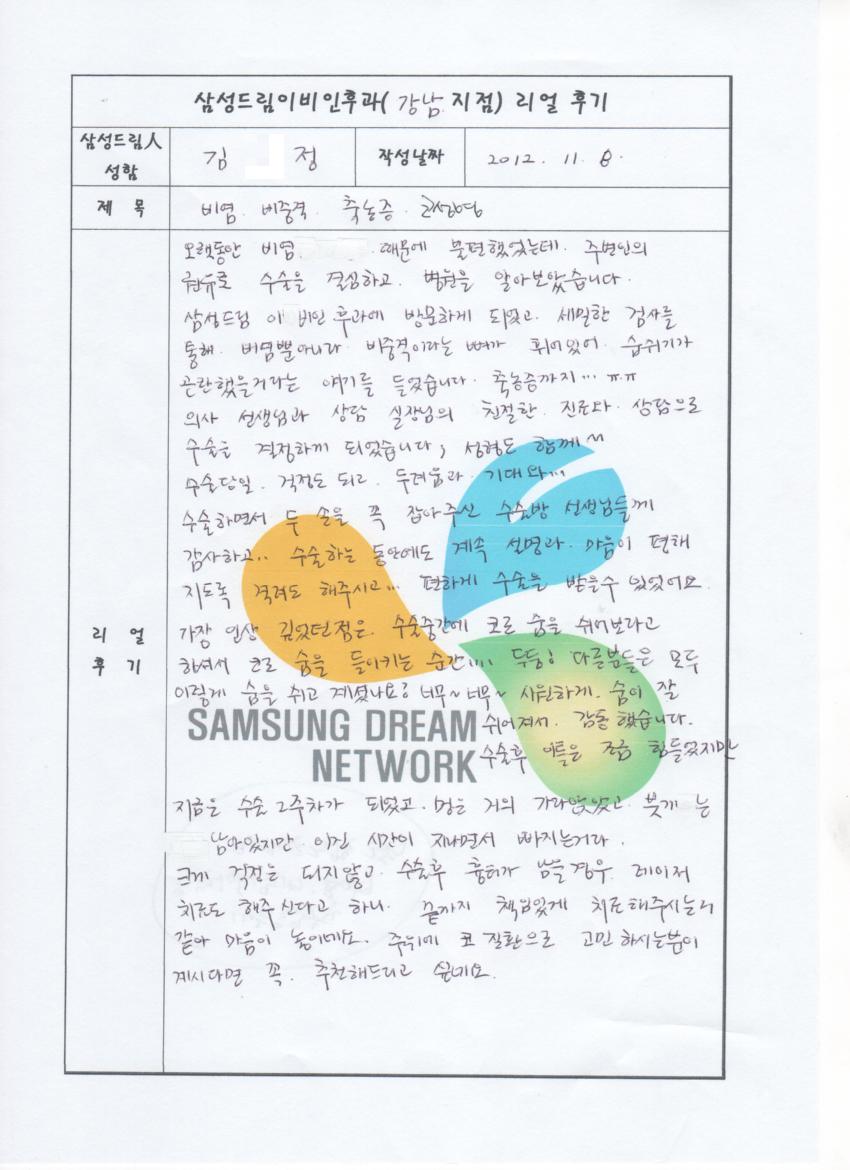 삼성드림이비인후과( 강남 지점) 리얼 후기
삼성드림人 성함
김 정
작성날짜
2012. 11. 8.
제 목
비염. 비중격. 축농증. 코성형
리 얼
후 기
오랫동안 비염 때문에 불편했었는데. 주변인의
권유로 수술을 결심하고. 병원을 알아보았습니다.
삼성드림 이비인후과에 방문하게 되었고. 세밀한 검사를
통해. 비염뿐아니라 비중격이라는 뼈가 휘어있어 숨쉬기가
곤란했을거라는 얘기를 들었습니다. 축농증까지... ㅠㅠ
의사 선생님과 상담 실장님의 친절한. 진료와. 상담으로
수술을 결정하게 되었습니다; 성형도 함께^^
수술당일. 걱정도 되고. 두려움과. 기대와...
수술하면서 두 손을 꼭 잡아주신 수술방 선생님들께
감사하고.. 수술하는 동안에도 계속 설명과. 마음이 편해
지도록 격려도 해주시고... 편하게 수술을 받을수 있었어요.
가장 인상 깊었던점은. 수술중간에 코로 숨을 쉬어보라고
하셔서 코로 숨을 들이키는 순간.... 두둥! 다른분들은 모두
이렇게 숨을 쉬고 계셨나요? 너무~ 너무~ 시원하게. 숨이 잘
쉬어져서. 감동했습니다.
수술후 이틀은 조금 힘들었지만
SAMSUNG DREAM
NETWORK
지금은 수술 2주차가 되었고. 멍은 거의 가라앉았고. 붓기는
남아있지만. 이건 시간이 지나면서 빠지는거라.
크게 걱정은 되지않고. 수술후 흉터가 남을경우. 레이저
치료도 해주신다고 하니. 끝까지 책임있게 치료해주시는거
같아 마음이 놓이네요. 주위에 코 질환으로 고민하시는분이
계시다면 꼭. 추천해드리고 싶네요.